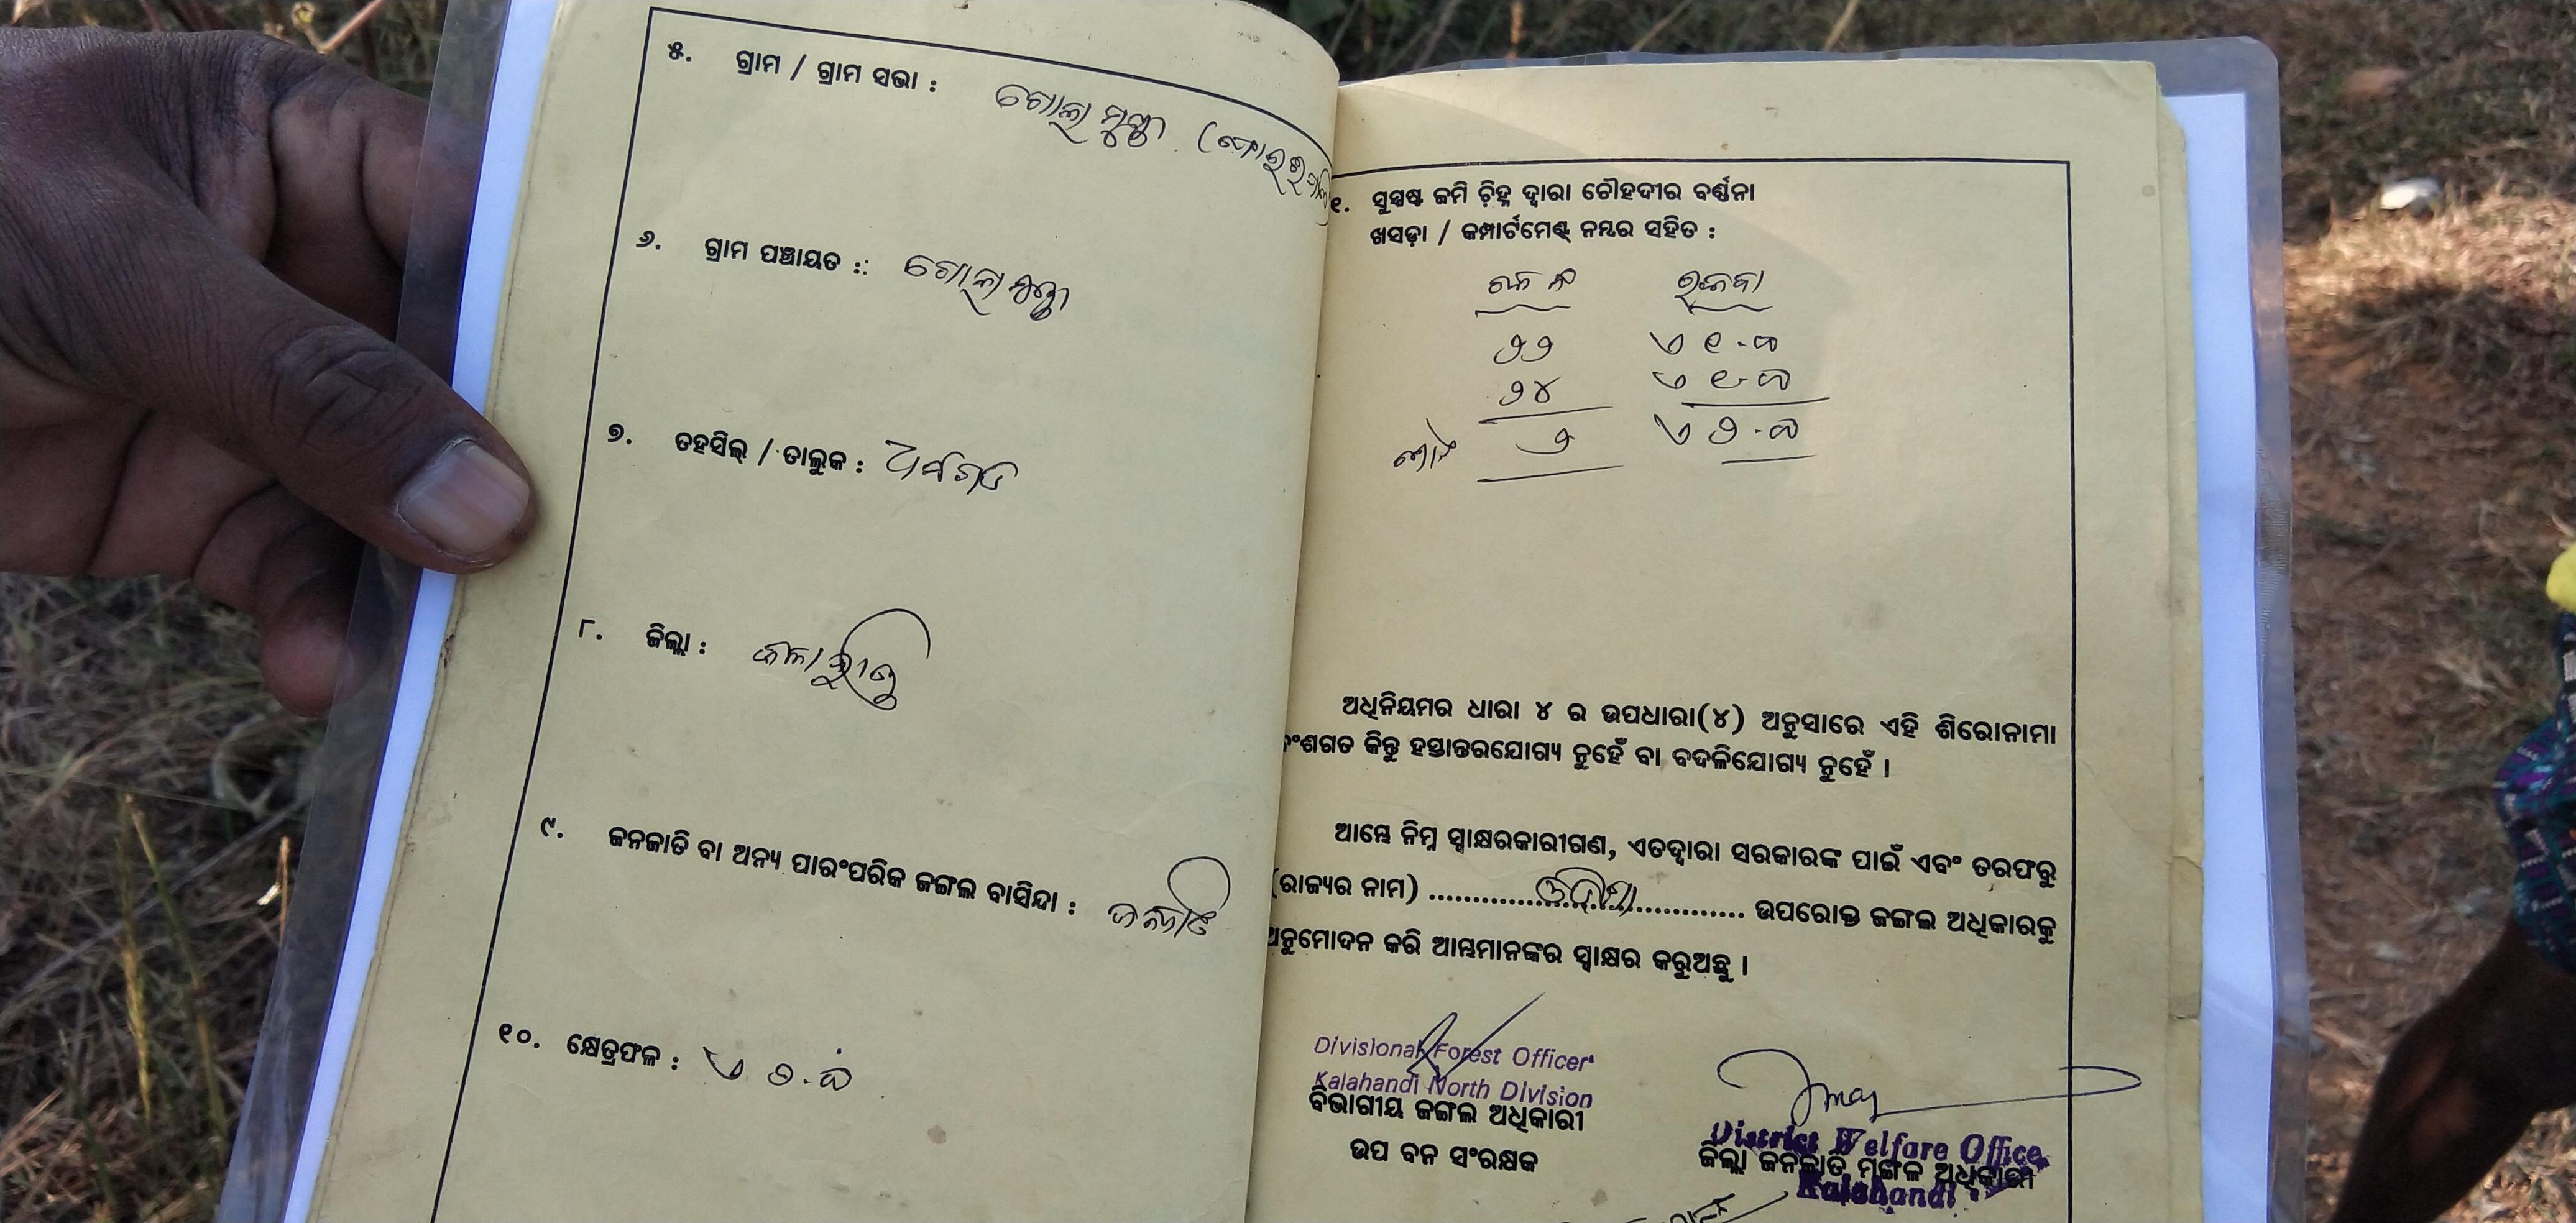 ୫. ଗ୍ରାମ / ଗ୍ରାମ ସଭା : ଗୋଲମୁଣ୍ଡା
୬. ଗ୍ରାମ ପଞ୍ଚାୟତ :: ଗୋଲାମୁଣ୍ଡା
୭. ତହସିଲ୍ / ତାଲୁକ : ଧର୍ମଗଡ
୮. ଜିଲ୍ଲା : କଳାହାଣ୍ଡି
୯. ଜନଜାତି ବା ଅନ୍ୟ ପାରଂପରିକ ଜଙ୍ଗଲ ବାସିନ୍ଦା : ଜନଜାତି
୧୦. କ୍ଷେତ୍ରଫଳ : ଏ ୨.୦୦
୧. ସୁସ୍ପଷ୍ଟ ଜମି ଚ଼ିହ୍ନ ଦ୍ୱାରା ଚୌହଦୀର ବର୍ଣ୍ଣନା
ଖସଡ଼ା / କମ୍ପାର୍ଟମେଣ୍ଟ୍ ନମ୍ବର ସହିତ :
ରକବା
୨୨ ଏ ୧.୦୦
୨୪ ଏ ୧.୦୦
୨ ଏ ୨.୦୦
ଅଧିନିୟମର ଧାରା ୪ ର ଉପଧାରା(୪) ଅନୁସାରେ ଏହି ଶିରୋନାମା
ବଂଶଗତ କିନ୍ତୁ ହସ୍ତାନ୍ତରଯୋଗ୍ୟ ନୁହେଁ ବା ବଦଳିଯୋଗ୍ୟ ନୁହେଁ ।
ଆମ୍ଭେ ନିମ୍ନ ସ୍ୱାକ୍ଷରକାରୀଗଣ, ଏତଦ୍ୱାରା ସରକାରଙ୍କ ପାଇଁ ଏବଂ ତରଫରୁ
(ରାଜ୍ୟର ନାମ) ............ଓଡ଼ିଶା............ ଉପରୋକ୍ତ ଜଙ୍ଗଲ ଅଧିକାରକୁ
ଅନୁମୋଦନ କରି ଆମ୍ଭମାନଙ୍କର ସ୍ୱାକ୍ଷର କରୁଅଛୁ ।
Divisional Forest Officer
Kalahandi North Division
ବିଭାଗୀୟ ଜଙ୍ଗଲ ଅଧିକାରୀ
ଉପ ବନ ସଂରକ୍ଷକ
District Welfare Office
ଜିଲ୍ଲା ଜନଜାତି ମଙ୍ଗଳ ଅଧିକାରୀ
Kalahandi